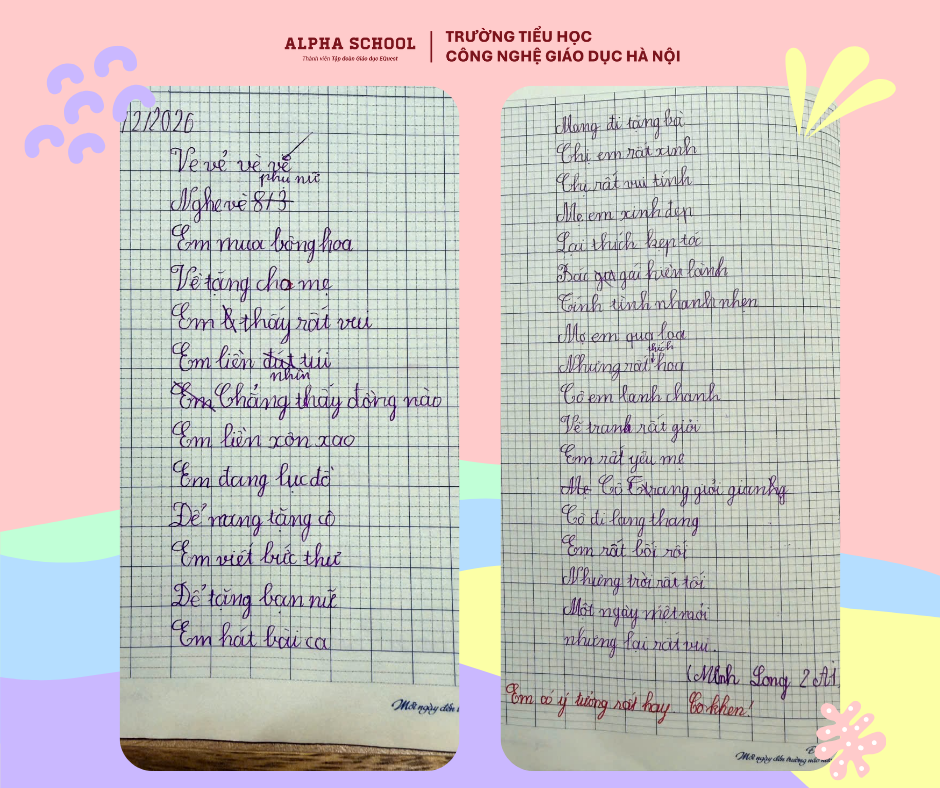 ALPHA SCHOOL
Thành viên Tập đoàn Giáo dục EQuest
TRƯỜNG TIỂU HỌC
CÔNG NGHỆ GIÁO DỤC HÀ NỘI
12/2026
Ve vẻ vè vè
phụ nữ
Nghe vè 8/3
Em mua bông hoa
Về tặng cho mẹ
Em thấy rất vui
Em liền đút túi
nhìn
Em Chẳng thấy đồng nào
Em liền xôn xao
Em đang lục đồ
Để mang tặng cô
Em viết bức thư
Để tặng bạn nữ
Em hát bài ca
Mỗi ngày đến
Mang đi tặng bà
Chị em rất xinh
Chị rất vui tính
Mẹ em xinh đẹp
Lại thích kẹp tóc
Bác gái hiền lành
Tính tình nhanh nhẹn
Mẹ em qua loa
thích
Nhưng rất hoa
Cô em lanh chanh
Vẽ tranh rất giỏi
Em rất yêu mẹ
Mẹ Cô Trang giỏi giang
Cô đi lang thang
Em rất bồi rồi
Nhưng trời rất tối
Một ngày mệt mỏi
nhưng lại rất vui.
(Minh Long 2A1
Em có ý tưởng rất hay. Cô khen!
Mỗi ngày đến trường